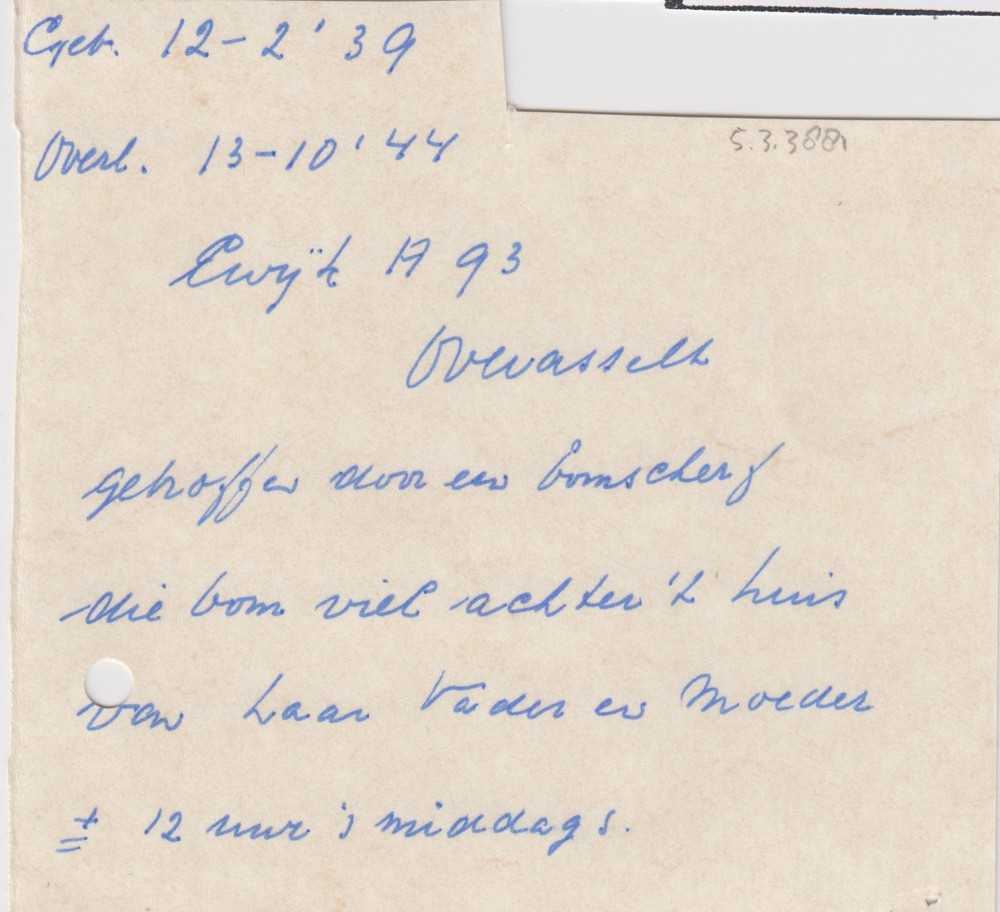 Geb. 12-2'39
Overl. 13-10'44
5.3.388
Ewijk A 93
Overasselt
getroffen door een bomscherf
die bom viel achter 't huis
van haar Vader en Moeder
± 12 uur 's middags.